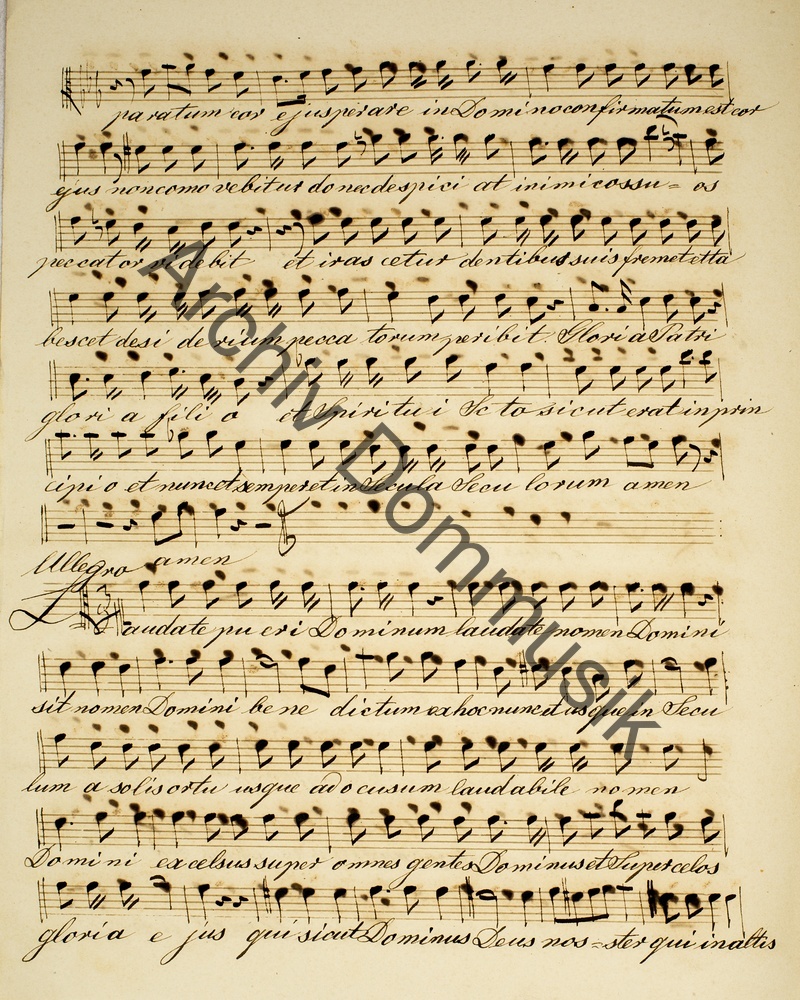 paratum cor ejus perare in Domino confirmatum est cor
ejus non comovebitur donec despiciat inimicos su = os
peccator videbit et irascetur dentibus suis fremet et ta
bescet desiderium peccatorum peribit. Gloria Patri
gloria filio et Spiritui Scto sicut erat in prin
cipio et nunc et semper et in Secula Seculorum amen
amen
Allegro
Laudate pueri Dominum laudate nomen Domini
sit nomen Domini benedictum ex hoc nunc et usque in Secu
lum a solis ortu usque ad ocusum laudabile nomen
Domini excelsus super omnes gentes Dominus et Super celos
gloria ejus qui sicut Dominus Deus nos = ster qui in altis
Archiv Dommusik